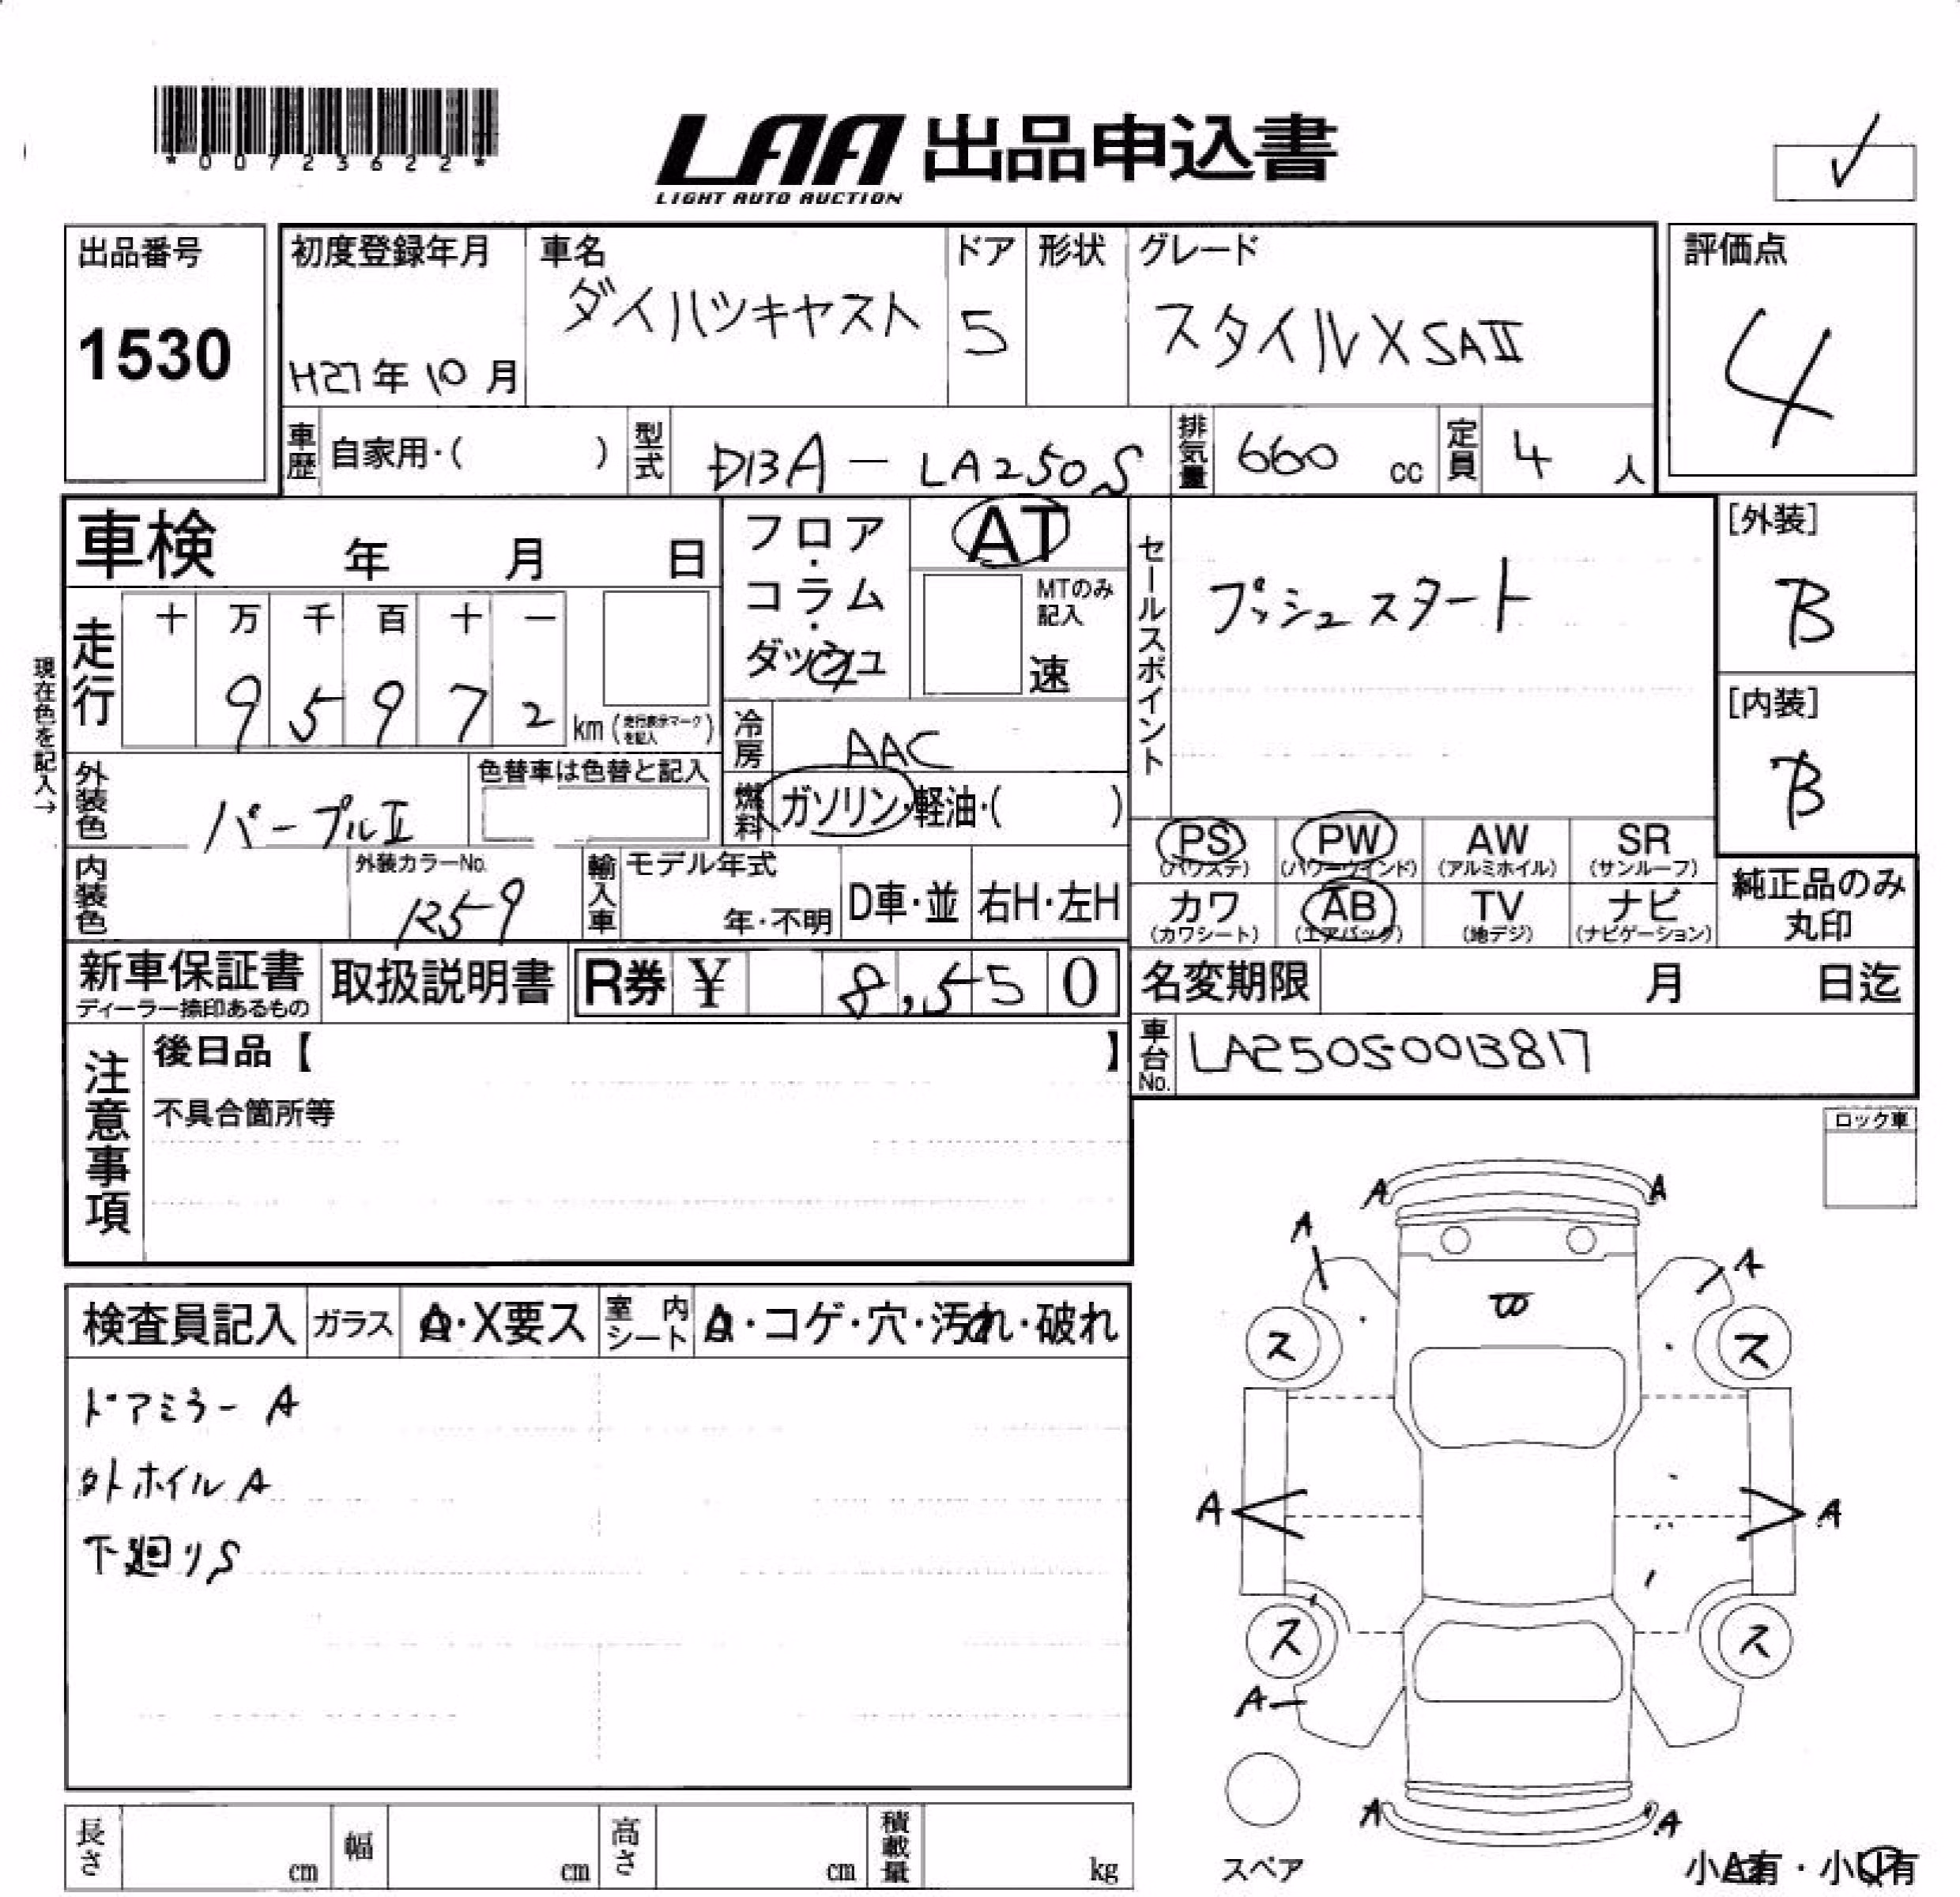 *00723622*
LAA 出品申込書
LIGHT AUTO AUCTION
✓
出品番号
1530
初度登録年月
H27年10月
車名
ダイハツキャスト
ドア
5
形状
グレード
スタイルXSAⅡ
評価点
4
車歴 自家用・( )
型式 DBA-LA250S
排気量 660 cc
定員 4 人
車検 年 月 日
フロア・コラム・ダッシュ
AT
MTのみ記入
速
セールスポイント
プッシュスタート
[外装]
B
[内装]
B
現在色を記入→
走行
十 万 千 百 十 一
9 5 9 7 2
km (走行表示マークを記入)
冷房 AAC
燃料 ガソリン・軽油・( )
外装色 パープルⅡ
色替車は色替と記入
内装色
外装カラーNo.
R59
輸入車
モデル年式
年・不明
D車・並
右H・左H
PS (パワステ)
PW (パワーウインド)
AW (アルミホイル)
SR (サンルーフ)
カワ (カワシート)
AB (エアバック)
TV (地デジ)
ナビ (ナビゲーション)
純正品のみ丸印
新車保証書
ディーラー捺印あるもの
取扱説明書
R券 ¥ 8,550
名変期限 月 日迄
車台No. LA250S0013817
注意事項
後日品【 】
不具合箇所等
ロック車
検査員記入
ガラス
A・X要ス
室内シート
A・コゲ・穴・汚れ・破れ
ドアミラー A
外ホイル A
下廻りS
A A
A A
ス ス
A A
ス ス
A
A A
スペア
小A有・小U有
長さ cm
幅 cm
高さ cm
積載量 kg